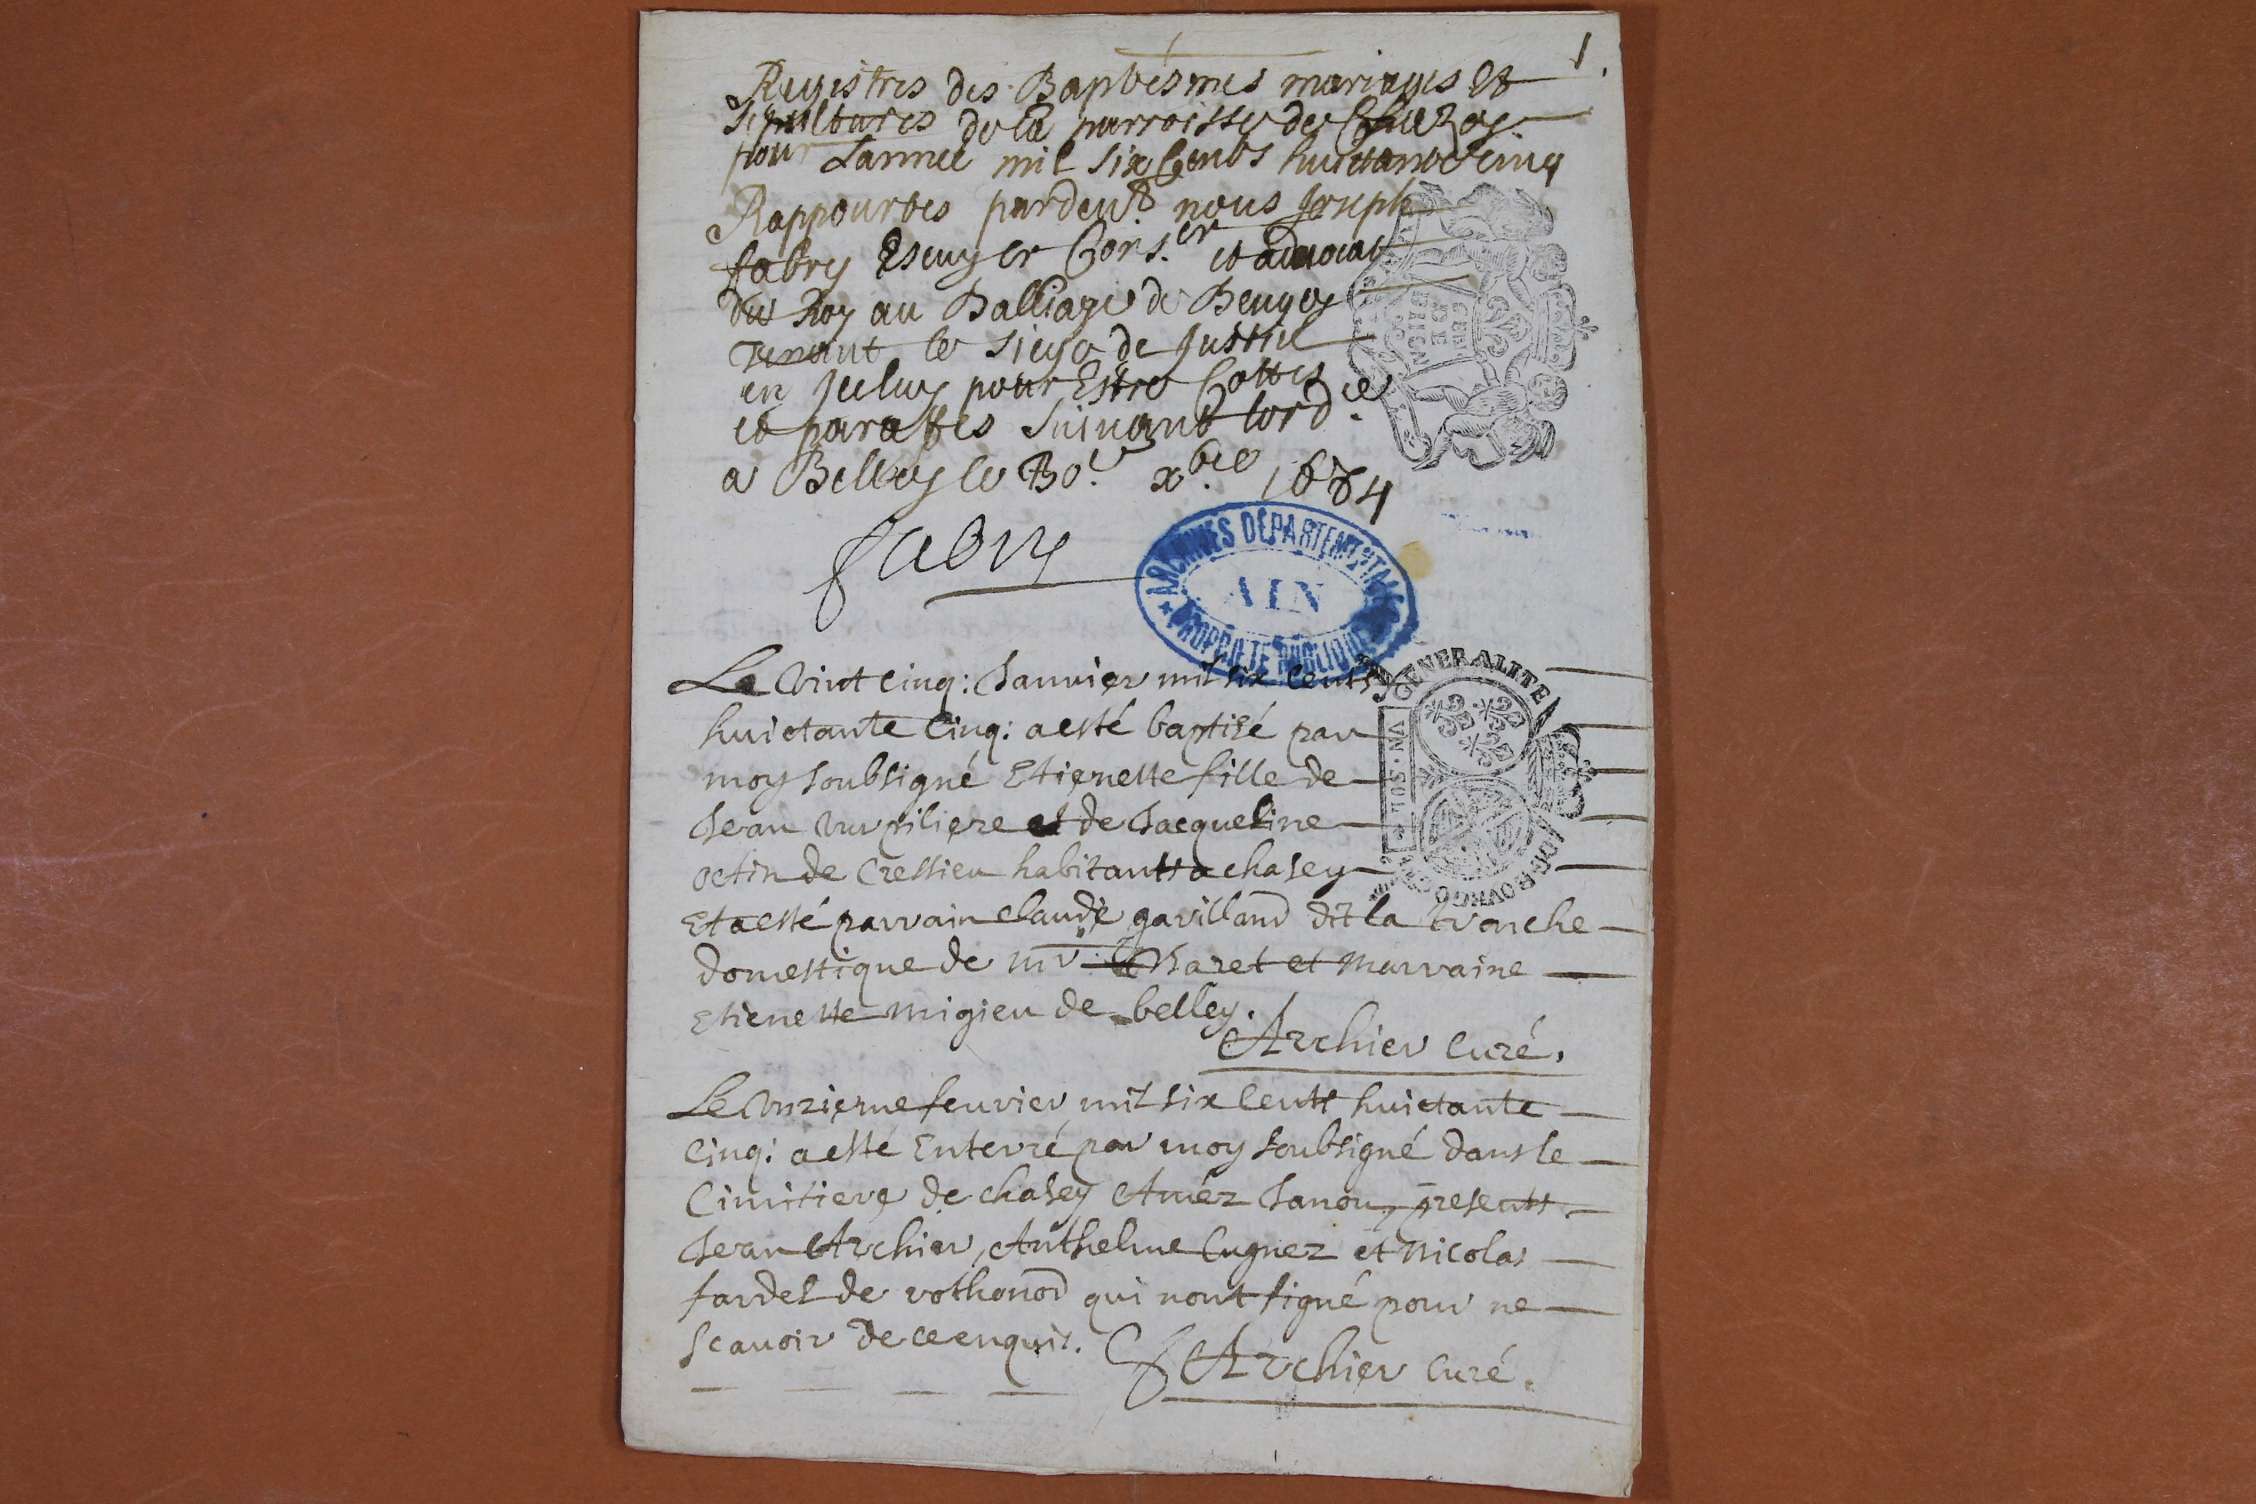 1.
Registres des Baptesmes mariages Et
sepultures de la parroisse de Chazey
pour Lannee mil six Cents huictante cinq
Rappourtes pardevt. nous Joseph
fabry Escuyer Cons.er et advocat
du Roy au Balliage de Beugey
tenant le siege de Justice
en Jceluy pour Estre Cottes
et paraffes suivant lord.ce
a Belley le 30.e x.bre 1684
fabry
ARCHIVES DÉPARTEMENTALES
AIN
PROPRIÉTÉ PUBLIQUE
GENERALITE
VN·SOL
DE BOVRGO
Le vint cinq: Janvier mil six cents
huictante cinq: a esté baptisé par
moy soubsigné Etienette fille de
Jean Vurpiliere et de Jacqueline
octin de Cressieu habitants a chasey
Et a esté parrain claude gavilland dit la branche
domestique de mr: Baret et Marraine
Etienette migieu de belley.
Archier Curé.
Le Vnzieme feurier mil six cents huictante
Cinq: a esté Enterré par moy soubsigné dans le
Cimitiere de chasey Amez Janon, presents
Jean Archier, Anthelme Cugnez et Nicolas
fardel de rothonod qui nont signé pour ne
scavoir de ce enquis.
Archier Curé.